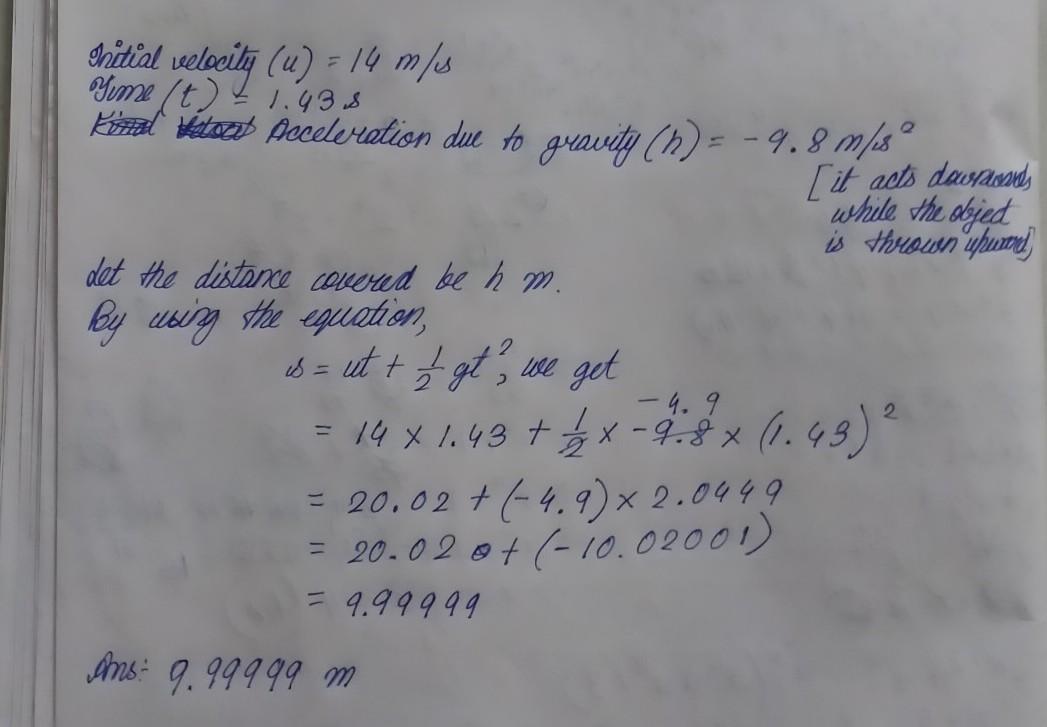 Initial velocity (u) = 14 m/s
Time (t) = 1.43 s
Acceleration due to gravity (h) = -9.8 m/s²
[it acts downwards
while the object
is thrown upward]
Let the distance covered be h m.
By using the equation,
s = ut + 1/2 gt², we get
-4.9
= 14 × 1.43 + 1/2 × -9.8 × (1.43)²
= 20.02 + (-4.9) × 2.0449
= 20.02 + (-10.02001)
= 9.99999
Ans: 9.99999 m